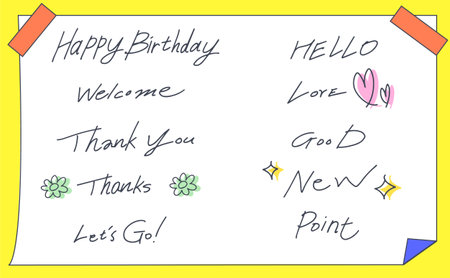 Happy Birthday
Welcome
Thank you
Thanks
Let's Go!
HELLO
LOVE
GooD
New
Point